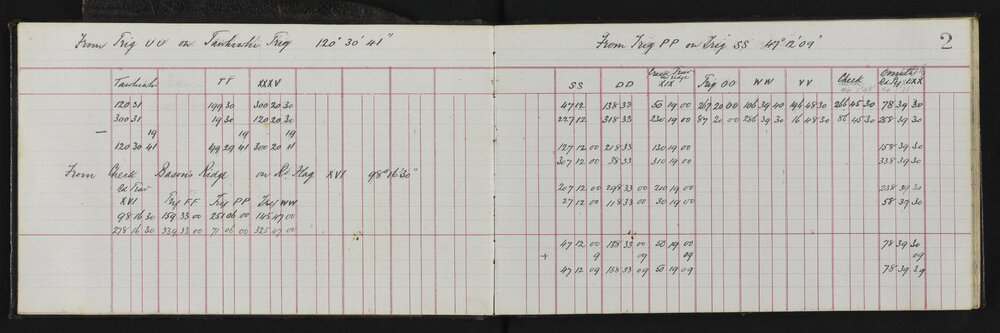 From Trig UU on Tawhiwhi Trig 120° 30' 41"
Tawhiwhi FF XXXV
120 31 199 30 300 20 30
300 31 19 30 120 20 30
— 19 19 19
120 30 41 49 29 41 300 20 11
From Check Bason's Ridge on Rd Flag XVI 98° 16' 30"
Rd Trav
XVI Trig FF Trig PP Trig WW
98 16 30 159 33 00 251 06 00 145 47 00
278 16 30 339 33 00 71 06 00 325 47 00
2
From Trig PP on Trig SS 47° 12' 09"
SS DD XIX Trig OO WW VV Check XXX
47 12 138 33 50 19 00 267 20 00 106 39 40 196 48 30 266 45 30 78 39 30
227 12 318 33 230 19 00 87 20 00 286 39 30 16 48 30 86 45 30 258 39 30
127 12 00 218 33 130 19 00 158 39 30
307 12 00 38 33 310 19 00 338 39 30
207 12 00 298 33 00 210 19 00 238 39 30
27 12 00 118 33 00 30 19 00 58 39 30
47 12 00 138 33 00 50 19 00 78 39 30
+ 9 09 09 09
47 12 09 138 33 09 50 19 09 78 39 39